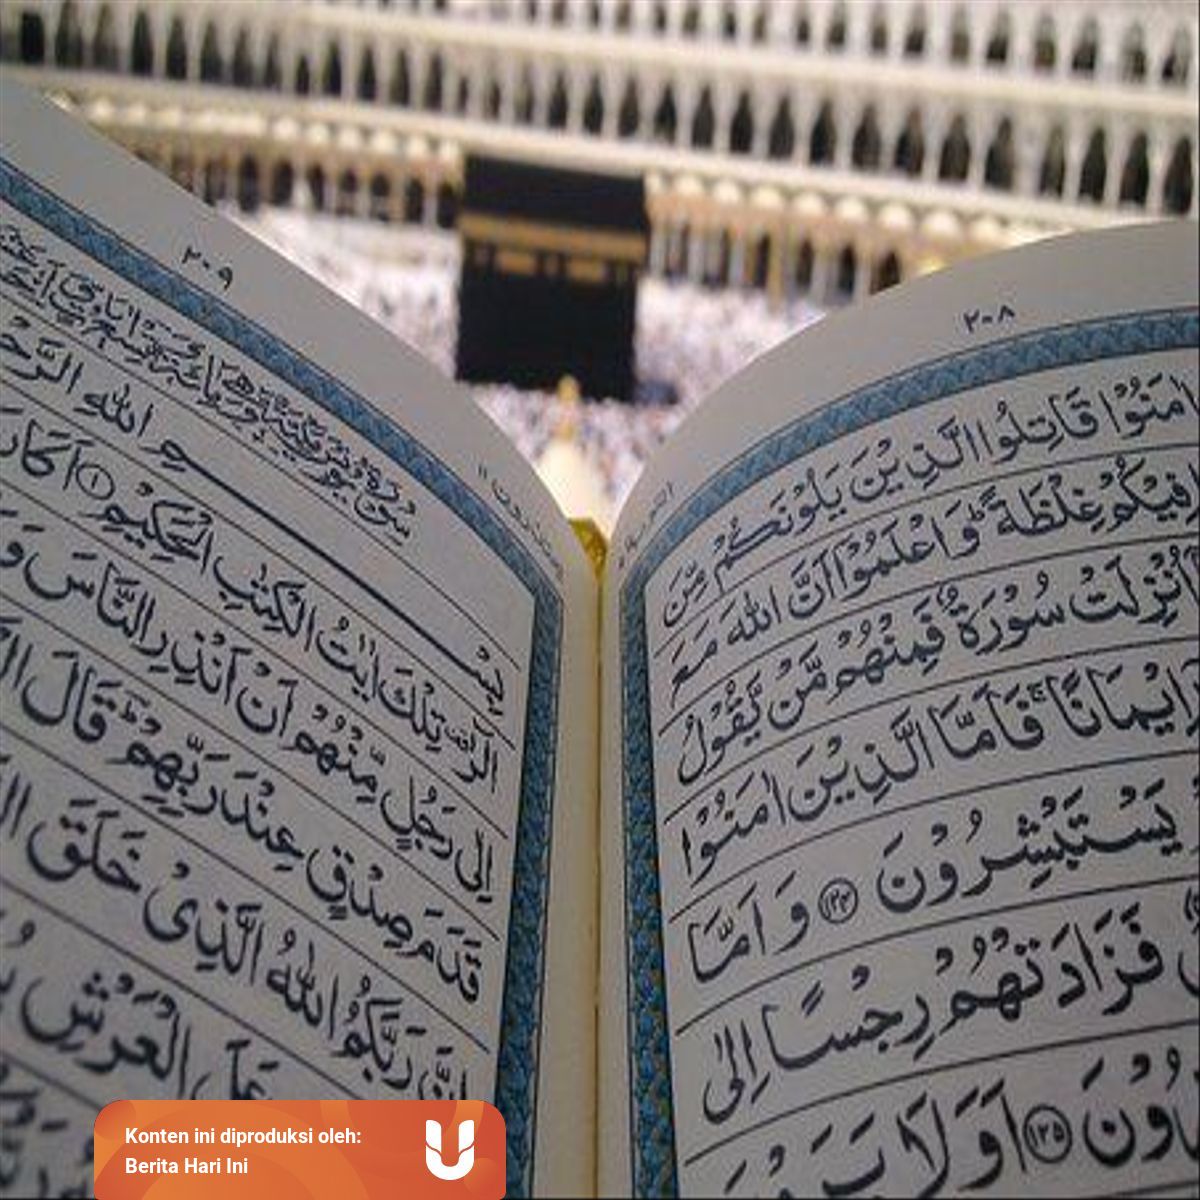 ٢٠٨
اٰمَنُوْا قَاتِلُوا الَّذِيْنَ يَلُوْنَكُمْ مِّنَ
فِيْكُمْ غِلْظَةً ؕ وَاعْلَمُوْۤا اَنَّ اللّٰهَ مَعَ
اُنْزِلَتْ سُوْرَةٌ فَمِنْهُمْ مَّنْ يَّقُوْلُ
اِيْمَانًا ۚ فَاَمَّا الَّذِيْنَ اٰمَنُوْا
يَسْتَبْشِرُوْنَ ﴿۱۲۴﴾ وَاَمَّا
فَزَادَتْهُمْ رِجْسًا اِلٰى
﴿۱۲۵﴾ اَوَلَا يَرَ
٢٠٩
يونس ١١
بِسْمِ اللّٰهِ الرَّحْ
الٓرٰ ۫ تِلْكَ اٰيٰتُ الْكِتٰبِ الْحَكِيْمِ ﴿۱﴾ اَكَانَ
اِلٰى رَجُلٍ مِّنْهُمْ اَنْ اَنْذِرِ النَّاسَ وَ
قَدَمَ صِدْقٍ عِنْدَ رَبِّهِمْ ؕ قَالَ
اِنَّ رَبَّكُمُ اللّٰهُ الَّذِىْ خَلَقَ
عَلَى الْعَرْشِ
Konten ini diproduksi oleh:
Berita Hari Ini